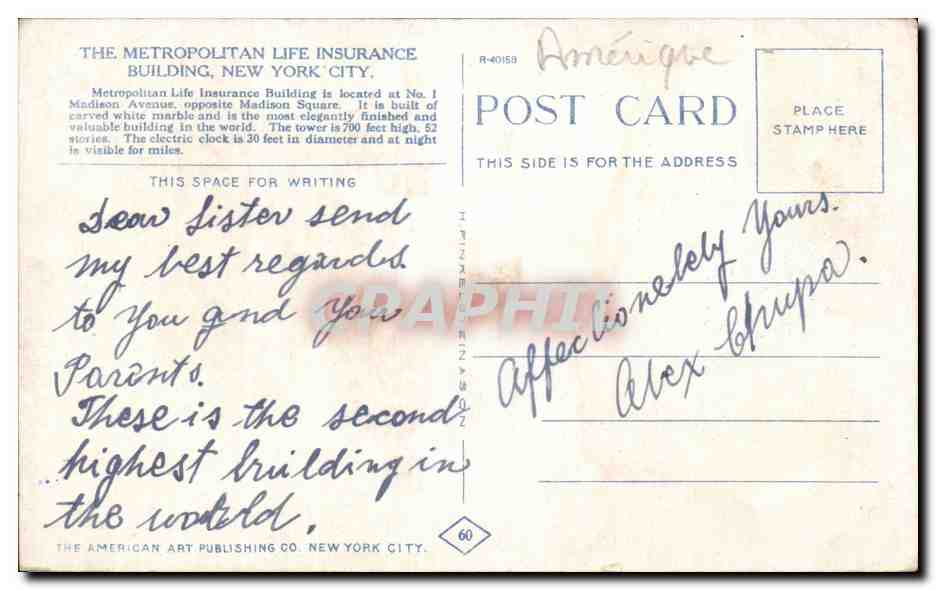 THE METROPOLITAN LIFE INSURANCE
BUILDING, NEW YORK CITY.
Metropolitan Life Insurance Building is located at No. 1
Madison Avenue, opposite Madison Square. It is built of
carved white marble and is the most elegantly finished and
valuable building in the world. The tower is 700 feet high, 52
stories. The electric clock is 30 feet in diameter and at night
is visible for miles.
THIS SPACE FOR WRITING
Dear Sister send
my best regards
to You and Your
Parents.
These is the second
highest building in
the world.
THE AMERICAN ART PUBLISHING CO. NEW YORK CITY.
H. FINKELSTEIN & SON
60
R-40159
Amérique
POST CARD
THIS SIDE IS FOR THE ADDRESS
PLACE
STAMP HERE
Affectionately Yours.
Alex Chupa.